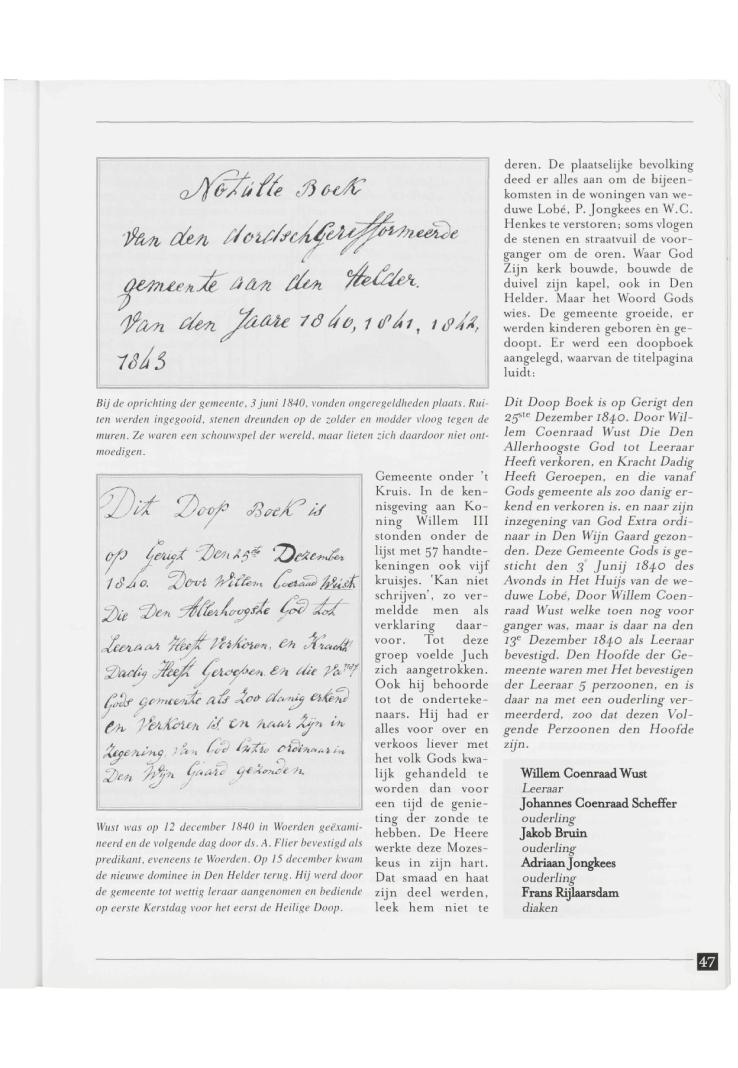 Notulte Boek
Van den dordsch Gerefformeerde
gemeente aan den Helder.
Van den Jaare 1840, 1841, 1842,
1843
Bij de oprichting der gemeente, 3 juni 1840, vonden ongeregeldheden plaats. Rui-
ten werden ingegooid, stenen dreunden op de zolder en modder vloog tegen de
muren. Ze waren een schouwspel der wereld, maar lieten zich daardoor niet ont-
moedigen.
Dit Doop Boek is
op Gerigt Den 25ste Dezember
1840. Door Willem Coeraad Wust
Die Den Allerhoogste God tot
Leeraar Heeft Verkoren, en Kracht
Dadig Heeft Geroepen En die Vanaf
Gods gemeente als Zoo danig erkend
en Verkoren is, en naar Zijn in
Zegening, Van God Extra ordenaar in
Den Wijn Gaard gezonden
Wust was op 12 december 1840 in Woerden geëxami-
neerd en de volgende dag door ds. A. Flier bevestigd als
predikant, eveneens te Woerden. Op 15 december kwam
de nieuwe dominee in Den Helder terug. Hij werd door
de gemeente tot wettig leraar aangenomen en bediende
op eerste Kerstdag voor het eerst de Heilige Doop.
Gemeente onder 't
Kruis. In de ken-
nisgeving aan Ko-
ning Willem III
stonden onder de
lijst met 57 handte-
keningen ook vijf
kruisjes. 'Kan niet
schrijven', zo ver-
meldde men als
verklaring daar-
voor. Tot deze
groep voelde Juch
zich aangetrokken.
Ook hij behoorde
tot de onderteke-
naars. Hij had er
alles voor over en
verkoos liever met
het volk Gods kwa-
lijk gehandeld te
worden dan voor
een tijd de genie-
ting der zonde te
hebben. De Heere
werkte deze Mozes-
keus in zijn hart.
Dat smaad en haat
zijn deel werden,
leek hem niet te
deren. De plaatselijke bevolking
deed er alles aan om de bijeen-
komsten in de woningen van we-
duwe Lobé, P. Jongkees en W.C.
Henkes te verstoren; soms vlogen
de stenen en straatvuil de voor-
ganger om de oren. Waar God
Zijn kerk bouwde, bouwde de
duivel zijn kapel, ook in Den
Helder. Maar het Woord Gods
wies. De gemeente groeide, er
werden kinderen geboren èn ge-
doopt. Er werd een doopboek
aangelegd, waarvan de titelpagina
luidt:
Dit Doop Boek is op Gerigt den
25ste Dezember 1840. Door Wil-
lem Coenraad Wust Die Den
Allerhoogste God tot Leeraar
Heeft verkoren, en Kracht Dadig
Heeft Geroepen, en die vanaf
Gods gemeente als zoo danig er-
kend en verkoren is. en naar zijn
inzegening van God Extra ordi-
naar in Den Wijn Gaard gezon-
den. Deze Gemeente Gods is ge-
sticht den 3e Junij 1840 des
Avonds in Het Huijs van de we-
duwe Lobé, Door Willem Coen-
raad Wust welke toen nog voor
ganger was, maar is daar na den
13e Dezember 1840 als Leeraar
bevestigd. Den Hoofde der Ge-
meente waren met Het bevestigen
der Leeraar 5 perzoonen, en is
daar na met een ouderling ver-
meerderd, zoo dat dezen Vol-
gende Perzoonen den Hoofde
zijn.
Willem Coenraad Wust
Leeraar
Johannes Coenraad Scheffer
ouderling
Jakob Bruin
ouderling
Adriaan Jongkees
ouderling
Frans Rijlaarsdam
diaken
47